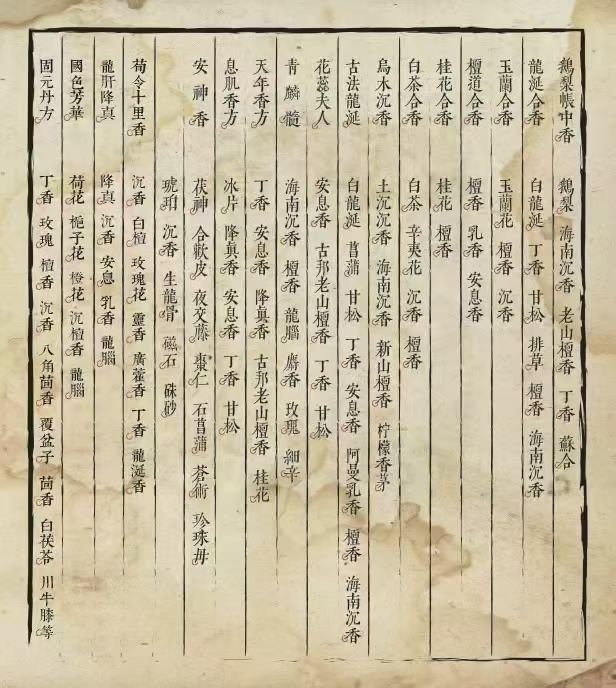 鵝梨帳中香 鵝梨 海南沉香 老山檀香 丁香 蘇合
龍涎合香 白龍涎 丁香 甘松 排草 檀香 海南沉香
玉蘭合香 玉蘭花 檀香 沉香
檀道合香 檀香 乳香 安息香
桂花合香 桂花 檀香
白茶合香 白茶 辛夷花 沉香 檀香
烏木沉香 土沉沉香 海南沉香 新山檀香 柠檬香茅
古法龍涎 白龍涎 菖蒲 甘松 丁香 安息香 阿曼乳香 檀香 海南沉香
花蕊夫人 安息香 古邦老山檀香 丁香 甘松
青麟髓 海南沉香 檀香 龍腦 麝香 玫瑰 細辛
天年香方 丁香 安息香 降真香 古邦老山檀香 桂花
息肌香方 冰片 降真香 安息香 丁香 甘松
安神香 茯神 合歡皮 夜交藤 棗仁 石菖蒲 蒼術 珍珠毋
琥珀 沉香 生龍骨 磁石 硃砂
荀令十里香 沉香 白檀 玫瑰花 靈香 廣藿香 丁香 龍涎香
龍肝降真 降真 沉香 安息 乳香 龍腦
國色芳華 荷花 梔子花 橙花 沉檀香 龍腦
固元丹方 丁香 玫瑰 檀香 沉香 八角茴香 覆盆子 茴香 白茯苓 川牛膝等